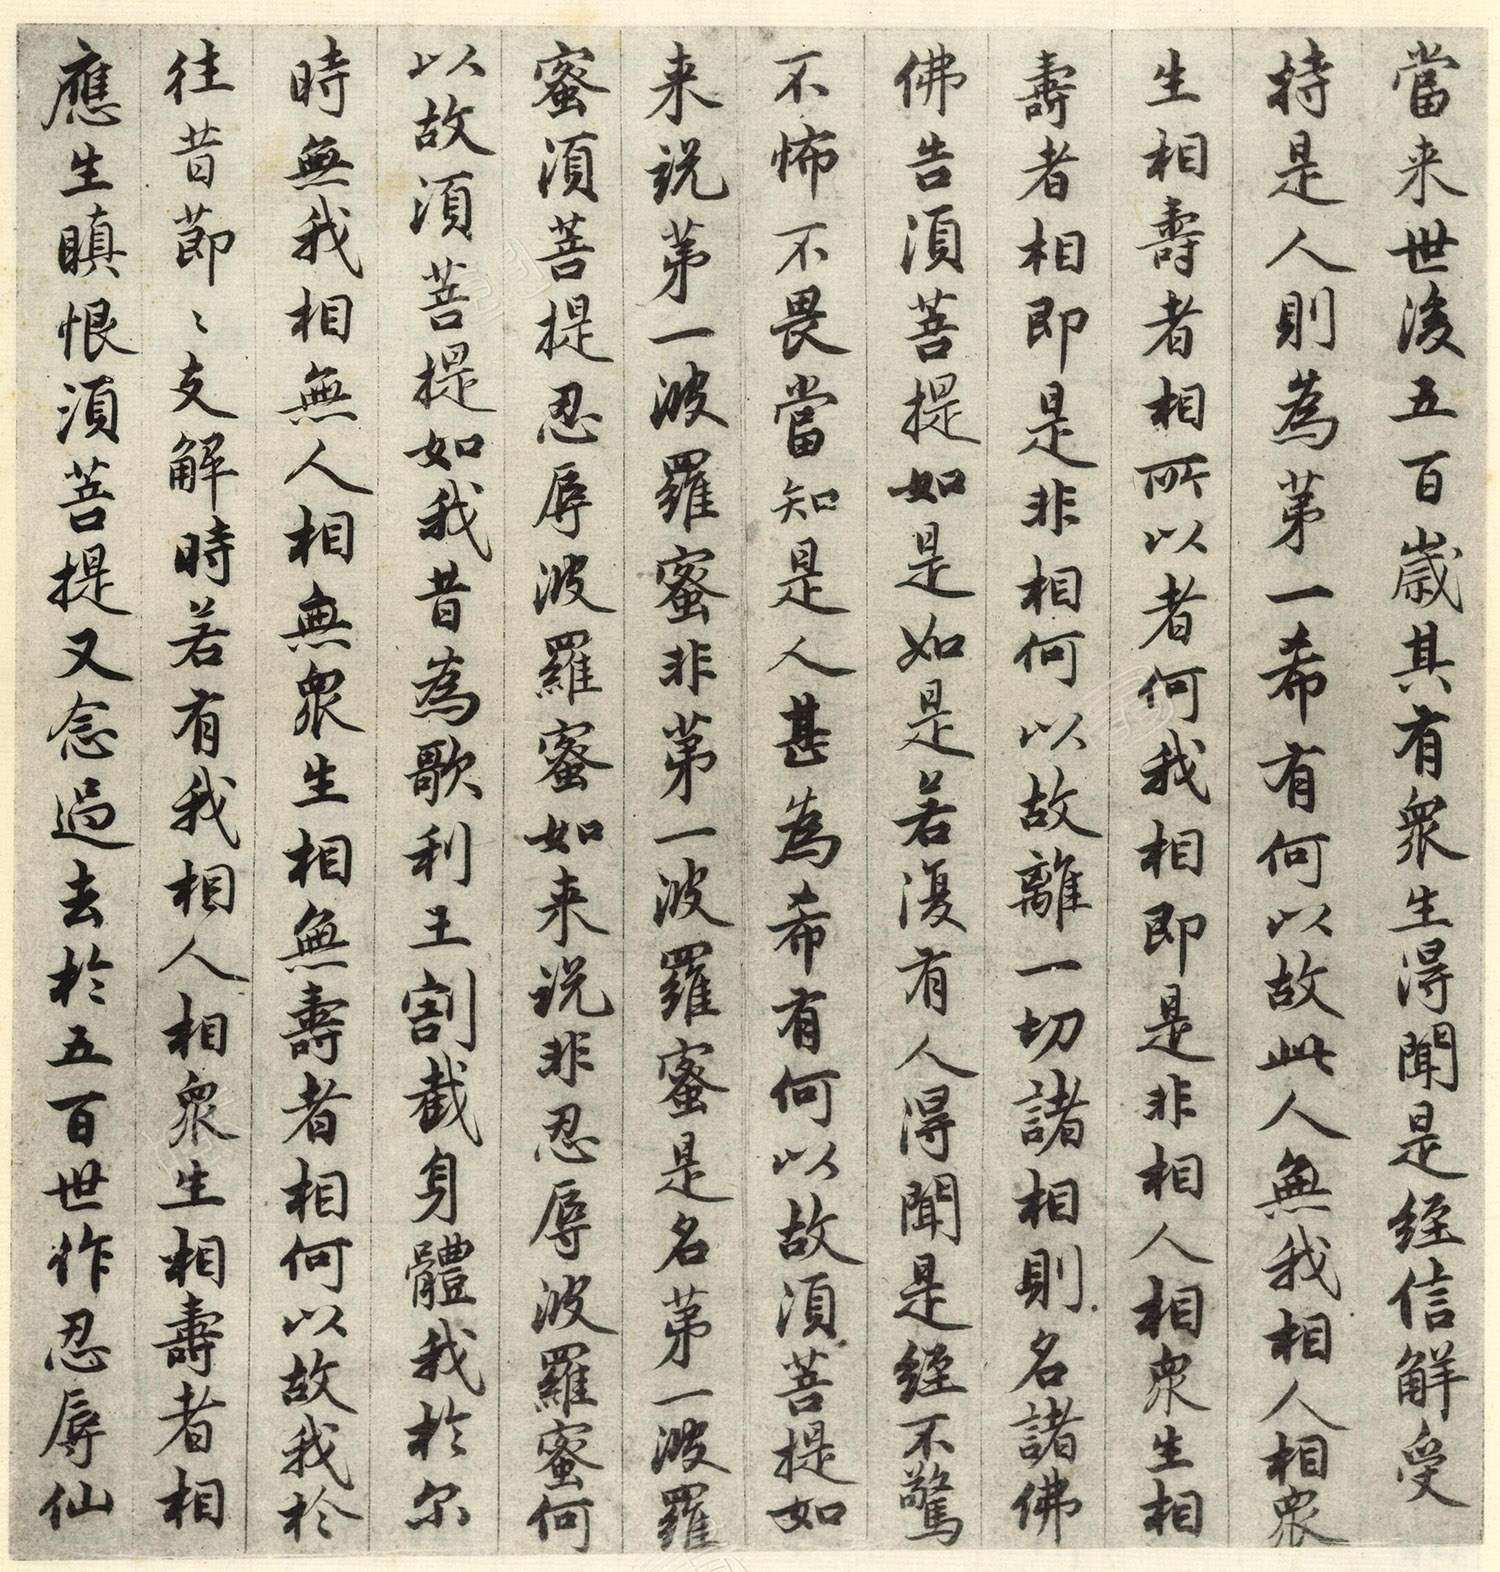 當来世後五百歲其有衆生得聞是經信解受
持是人則為第一希有何以故此人無我相人相衆
生相壽者相所以者何我相即是非相人相衆生相
壽者相即是非相何以故離一切諸相則名諸佛
佛告須菩提如是如是若復有人得聞是經不驚
不怖不畏當知是人甚為希有何以故須菩提如
来說第一波羅蜜非第一波羅蜜是名第一波羅
蜜須菩提忍辱波羅蜜如来說非忍辱波羅蜜何
以故須菩提如我昔為歌利王割截身體我於尔
時無我相無人相無衆生相無壽者相何以故我於
往昔節〻支解時若有我相人相衆生相壽者相
應生瞋恨須菩提又念過去於五百世作忍辱仙